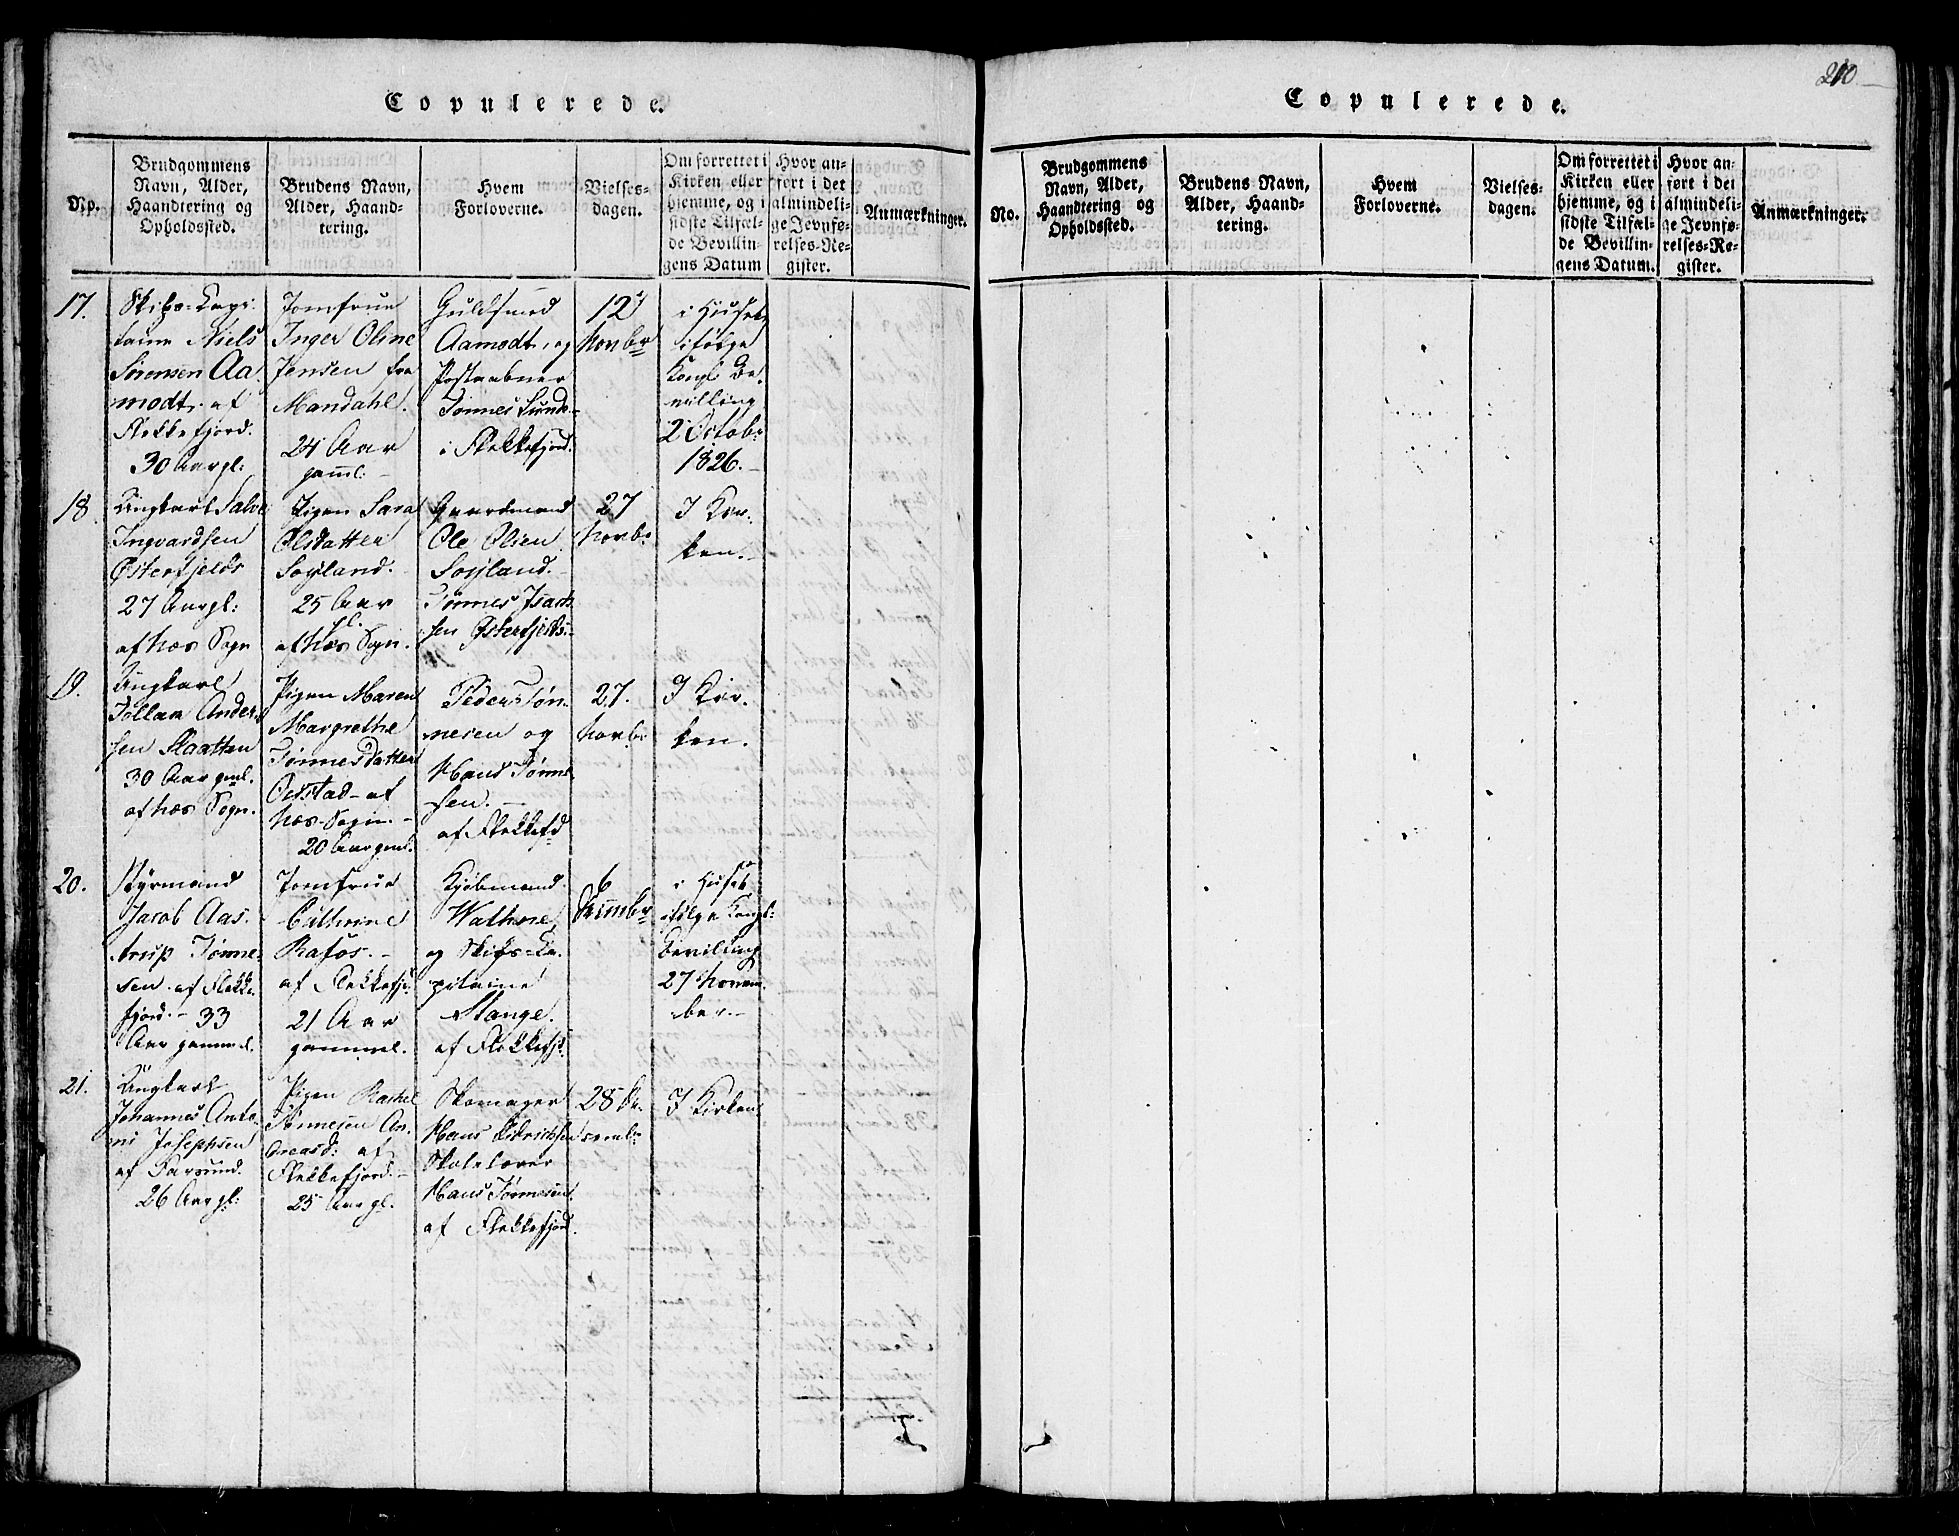 210
Copulerede.
No.
Brudgommens
Navn, Alder,
Haandtering og
Opholdssted.
Brudens Navn,
Alder, Haand-
tering.
Hvem
Forloverne.
Vielses-
dagen.
Om forrettet i
Kirken eller
hjemme, og i
sidste Tilfæl-
de Bevillin-
gens Datum
Hvor an-
ført i det
almindeli-
ge Jevnfø-
relses-Re-
gister.
Anmærkninger.
17.
Skibs-Capi-
taine Niels
Sørensen Aa-
modt. af
Flekkefjord.
30 Aar gl:
Jomfrue
Inger Oline
Jensen fra
Mandahl.
24 Aar
gaml.
Guldsmed
Aamodt, og
Postaabner
Tønnes Sunde
i Flekkefjord.
12
Novbr
i Huset
ifølge
Kongl Be-
villing
2 Octobr
1826.
18.
Ungkarl Salve
Ingvardsen
Østerfjelds
27 Aar gl:
af hos Sogn
Pigen Sara
Olsdatter
Soyland.
25 Aar
gl.
af hos Sogn.
Gaardmand
Ole Olsen
Soyland.
Tønnes Isach-
sen Østerfjelds.
27
Novbr
I Kir-
ken.
19.
Ungkarl
Tollam Ander-
sen Slaatten
30 Aar gml.
af hos Sogn.
Pigen Maren
Margrethe
Tønnesdatter
af
hos Sogn.
20 Aar gml.
Peder Tøn-
nesen og
Hans Tønne-
sen.
af Flekkefd
27.
Novbr
I Kir-
ken.
20.
Styrmand
Jacob Aas-
trup Tønne-
sen. af Flekke-
fjord. - 33
Aar gammel.
Jomfrue
Cathrine
Rafos.
af Flekkefj:
21 Aar
gammel.
Kjøbmand
Wathne
og Skibs-Ca-
pitaine
Stange.
af Flekkefj:
6
Decembr
i Huset
ifølge Kongl:
Bevilling
27 Novem-
ber.
21.
Ungkarl
Johannes Anto-
ni Josephsen
af Farsund.
26 Aar gl:
Pigen Rachel
Tønnesen An-
dreasd: af
Flekkefjord.
25 Aar gl.
Skomager
Hans Didrichsen
Skolelærer
Hans Tønnesen
af Flekkefjord.
28 De-
cembr
I Kirken
Copulerede.
No.
Brudgommens
Navn, Alder,
Haandtering og
Opholdssted.
Brudens Navn,
Alder, Haand-
tering.
Hvem
Forloverne.
Vielses-
dagen.
Om forrettet i
Kirken eller
hjemme, og i
sidste Tilfæl-
de Bevillin-
gens Datum.
Hvor an-
ført i det
almindeli-
ge Jevnfø-
relses-Re-
gister.
Anmærkninger.